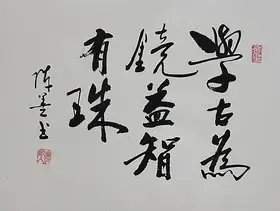 學古為
鏡益智
有珠
陈墨书